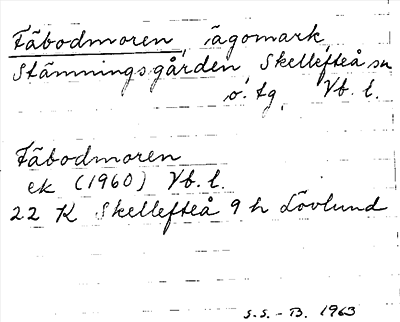 Fäbodmoren, ägomark,
Stämningsgården, Skellefteå sn
o. tg, Vb. l.
Fäbodmoren
ek (1960) Vb. l.
22 K Skellefteå 9 h Lövlund
S.S. - B. 1963